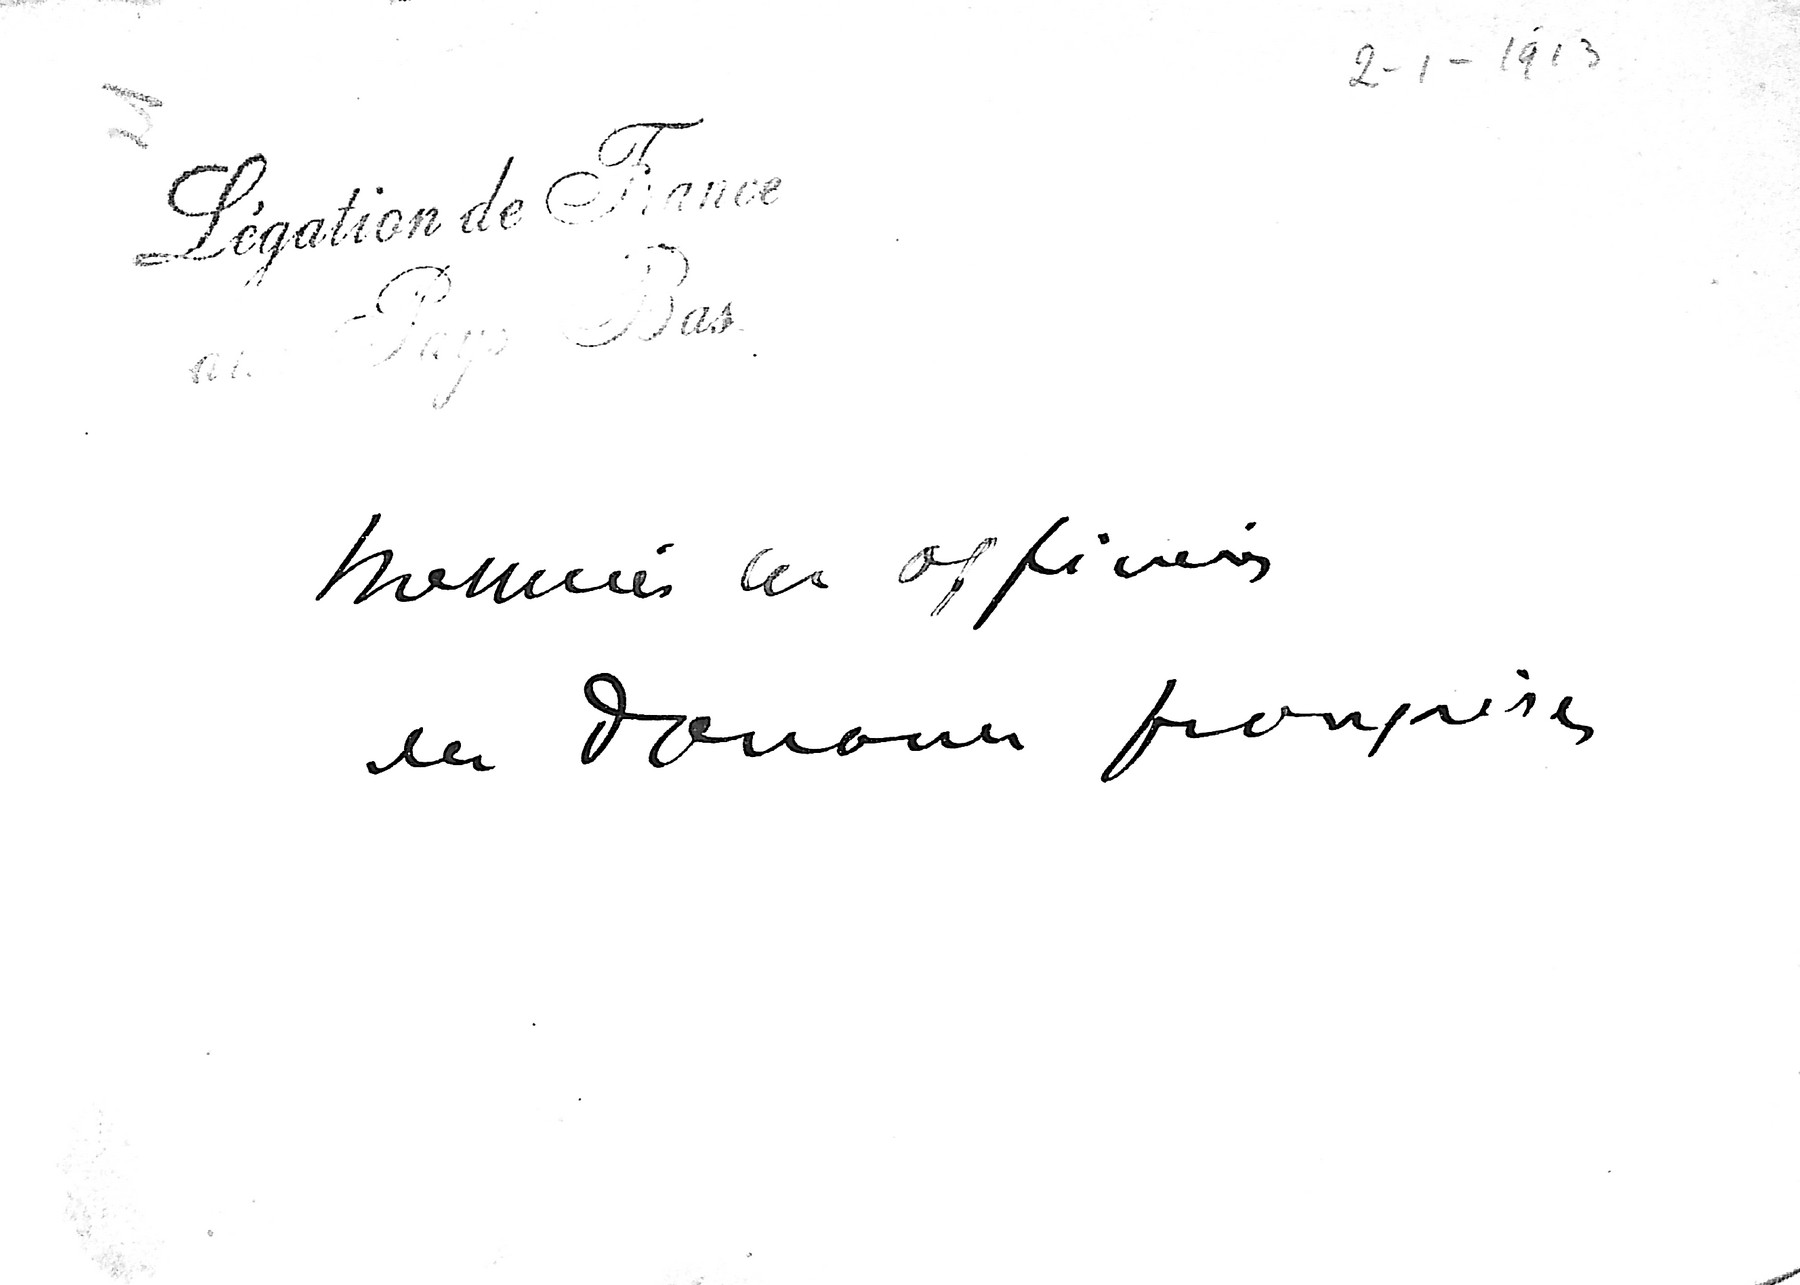 2-1-1913
Légation de France
aux Pays Bas
Messieurs les officiers
des Douanes françaises